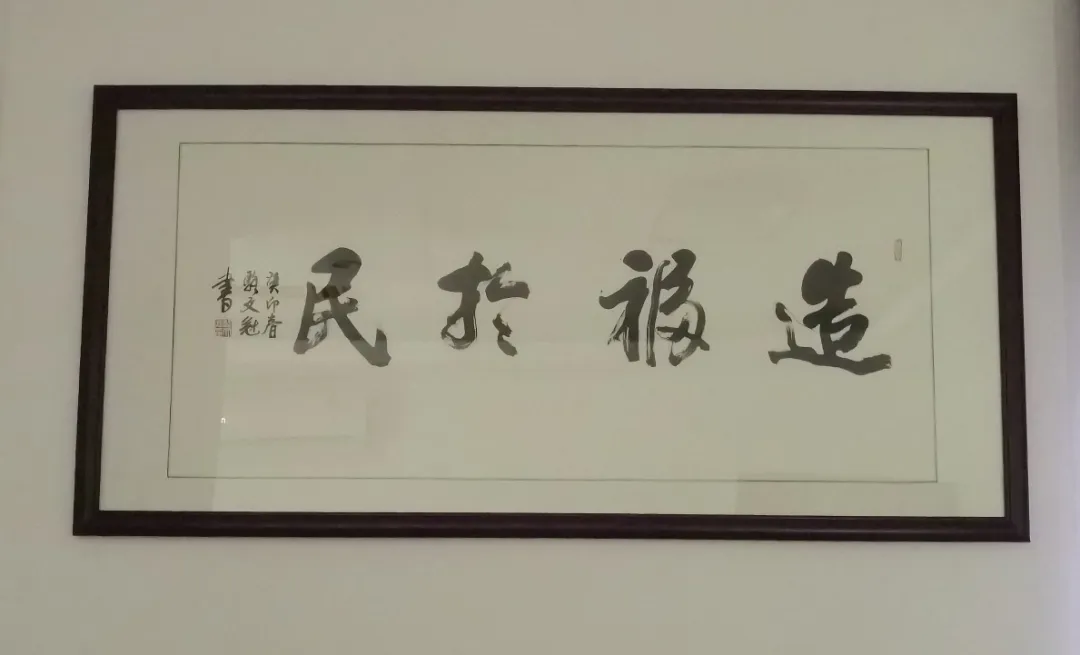 造福於民
癸卯春
文魁
書